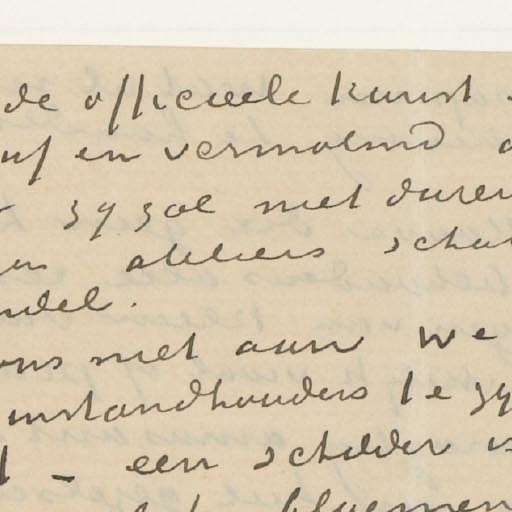 de officieele kunst
uf en vermolmd
zy zal niet duren
ateliers
ndel.
ons niet aan we
instandhouders te zy
– een schilder is
bloemen